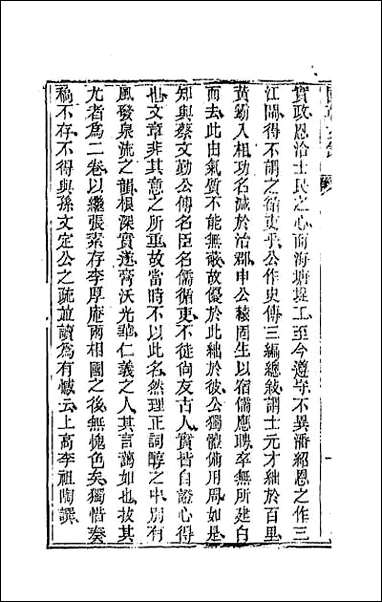 實政恩洽士民之心而海塘捍工至今遵守不異潘紹恩之作三
江閘得不謂之循吏乎公作史傳三編總敘謂士元才絀於百里
黃霸入相功名減於治郡申公轅固生以宿儒應聘卒無所建白
而去此由氣質不能無蔽故優於此絀於彼公獨體備用周如是
知與蔡文勤公傳名臣名儒循吏不徒尚友古人實皆自證心得
也文章非其意之所重故當時不以此名然理正詞醇之中別有
風發泉流之韻根深實遂膏沃光華仁義之人其言藹如也拔其
尤者為二卷以繼張素存李厚庵兩相國之後無愧色矣獨惜奏
稿不存不得與孫文定公之疏並讀為有憾云上高李祖陶譔